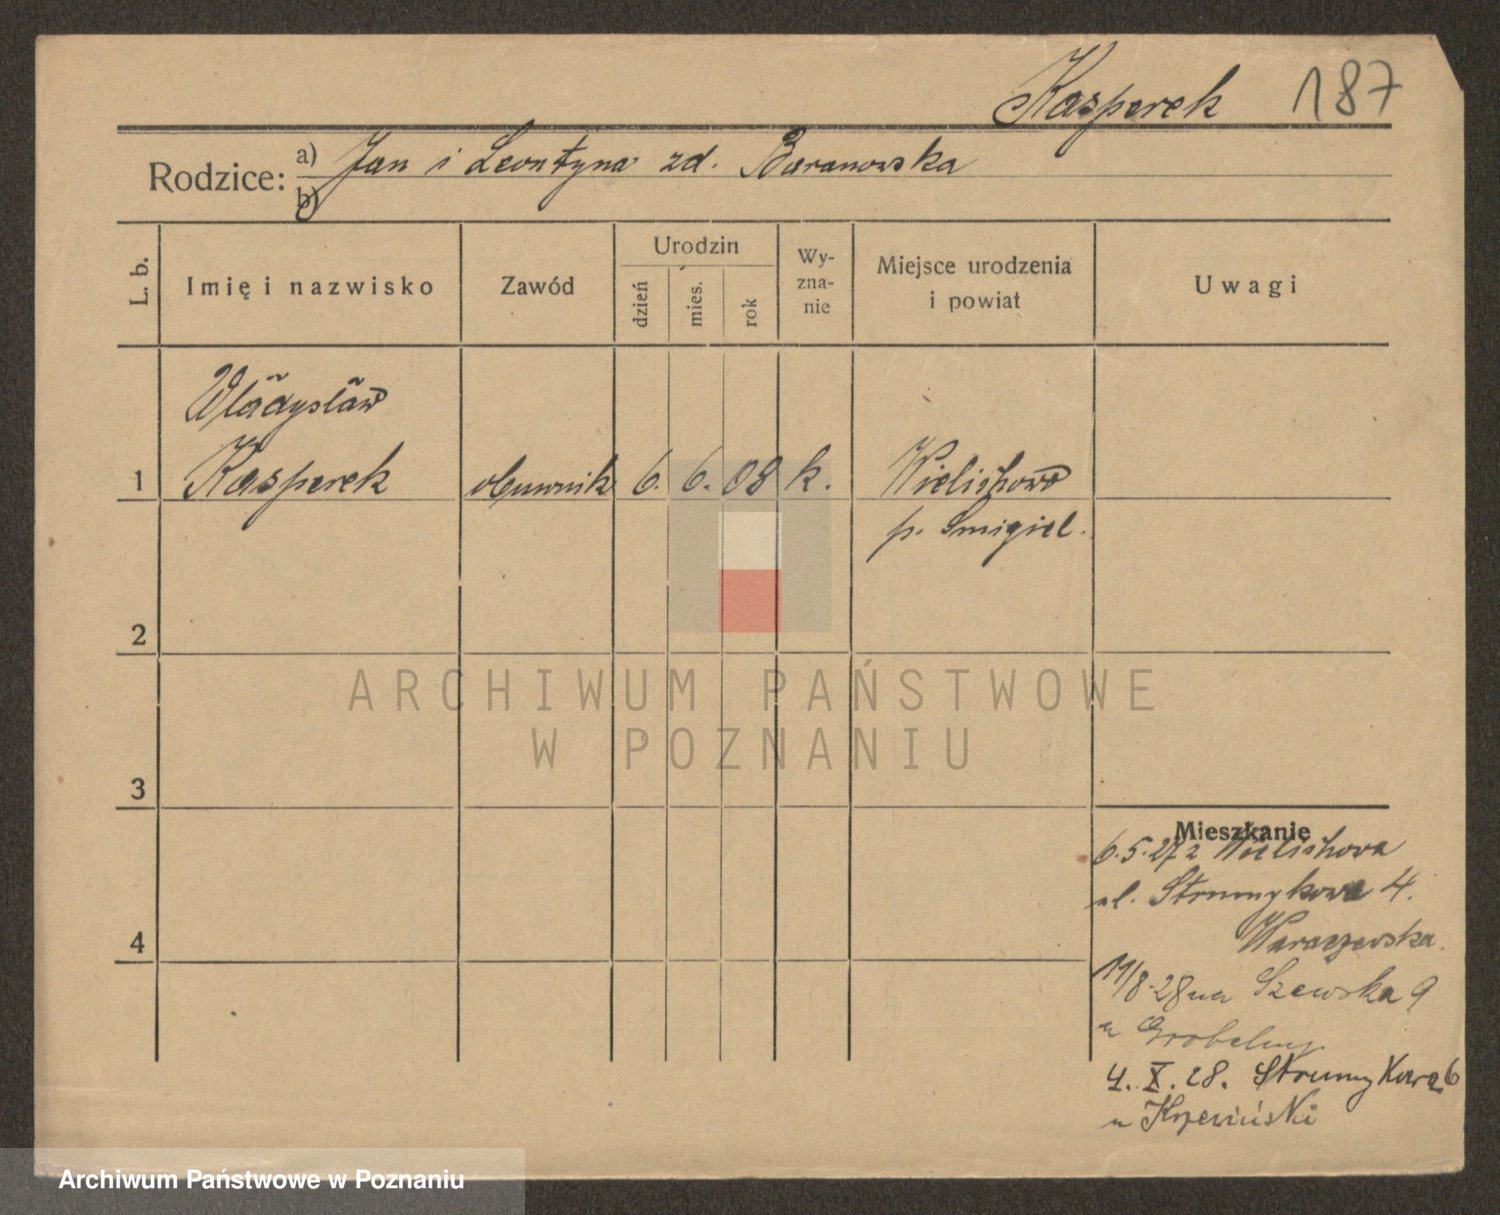 Kasperek 187
Rodzice: a) Jan i Leontyna zd. Baranowska
b)
L. b.
Imię i nazwisko
Zawód
Urodzin
dzień
mies.
rok
Wy-
zna-
nie
Miejsce urodzenia
i powiat
Uwagi
Władysław
1 Kasperek obuwnik 6. 6. 08 k. Wielichowo
p. Smigiel.
2
3
4
ARCHIWUM PAŃSTWOWE
W POZNANIU
Mieszkanie
6.5.27 z Wielichowa
ul. Strumykowa 4.
11/8.28 na Szewska 9
u Grobelny
4. X. 28. Strumykowa 6
u
Archiwum Państwowe w Poznaniu